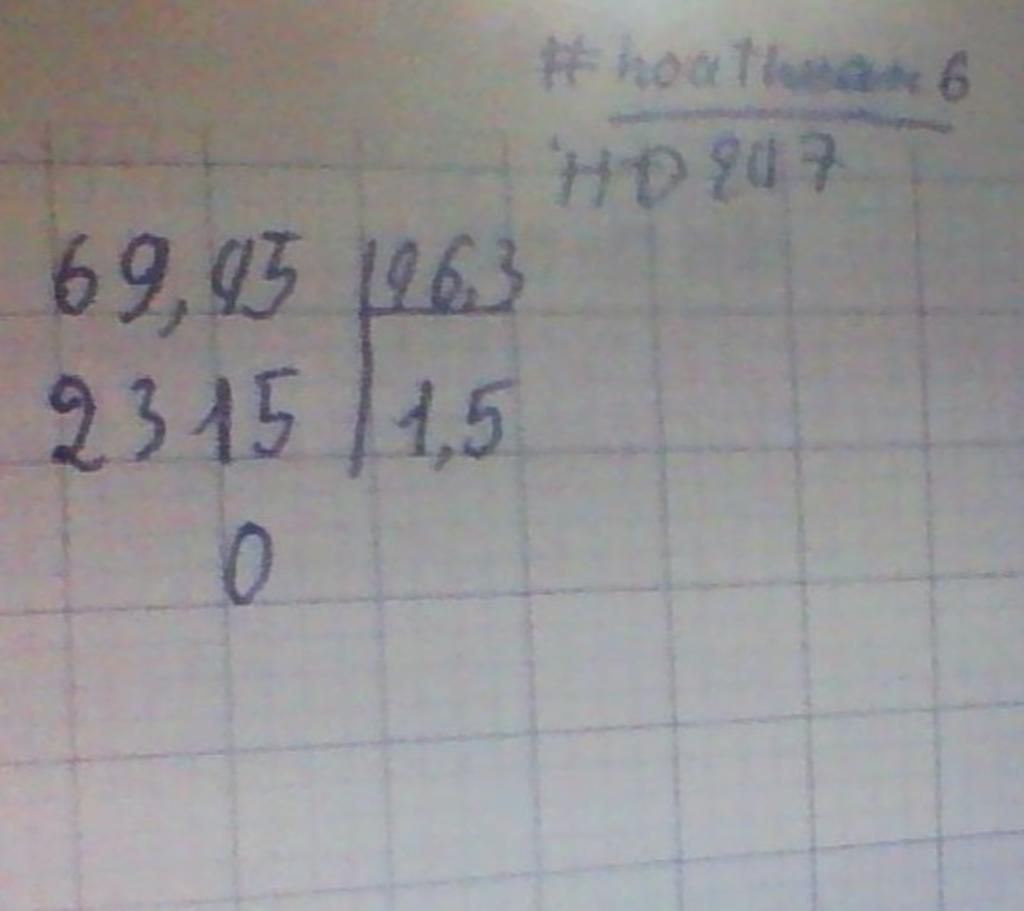 #hoathuan6
69,45 46,3
2315 1,5
0